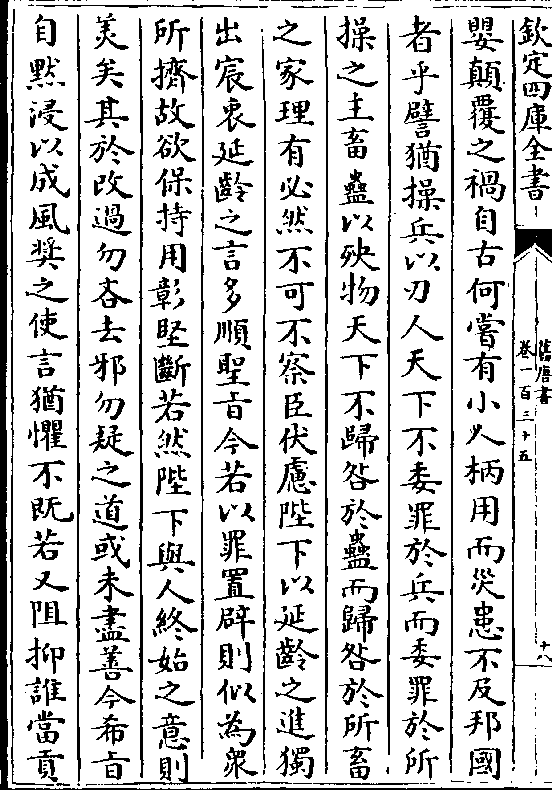 欽定四庫全書
舊唐書
卷一百三十五
十八
嬰顛覆之禍自古何嘗有小人柄用而災患不及邦國
者乎譬猶操兵以刃人天下不委罪於兵而委罪於所
操之主畜蠱以殃物天下不歸咎於蠱而歸咎於所畜
之家理有必然不可不察臣伏慮陛下以延齡之進獨
出宸衷延齡之言多順聖旨今若以罪置辟則似為衆
所擠故欲保持用彰堅斷若然陛下與人終始之意則
美矣其於改過勿吝去邪勿疑之道或未盡善今希旨
自黙浸以成風奬之使言猶懼不既若又阻抑誰當貢